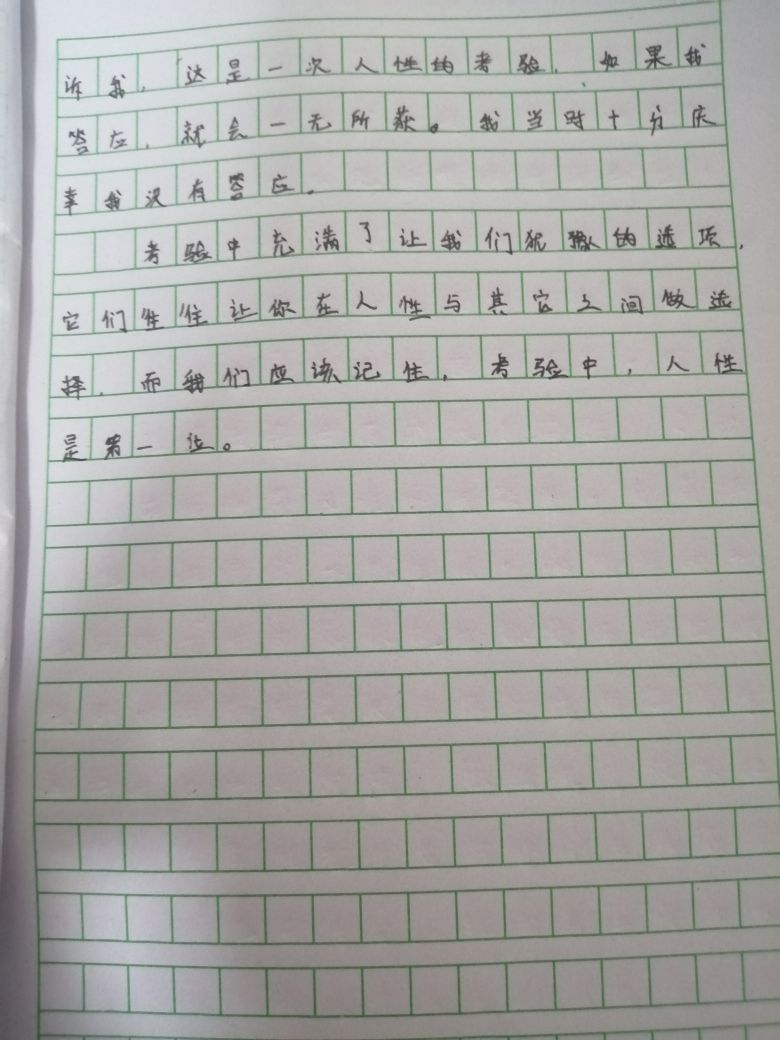 诉我，这是一次人性的考验，如果我
答应，就会一无所获。我当时十分庆
幸我没有答应。
考验中充满了让我们犹豫的选项，
它们往往让你在人性与其它之间做选
择，而我们应该记住，考验中，人性
是第一位。